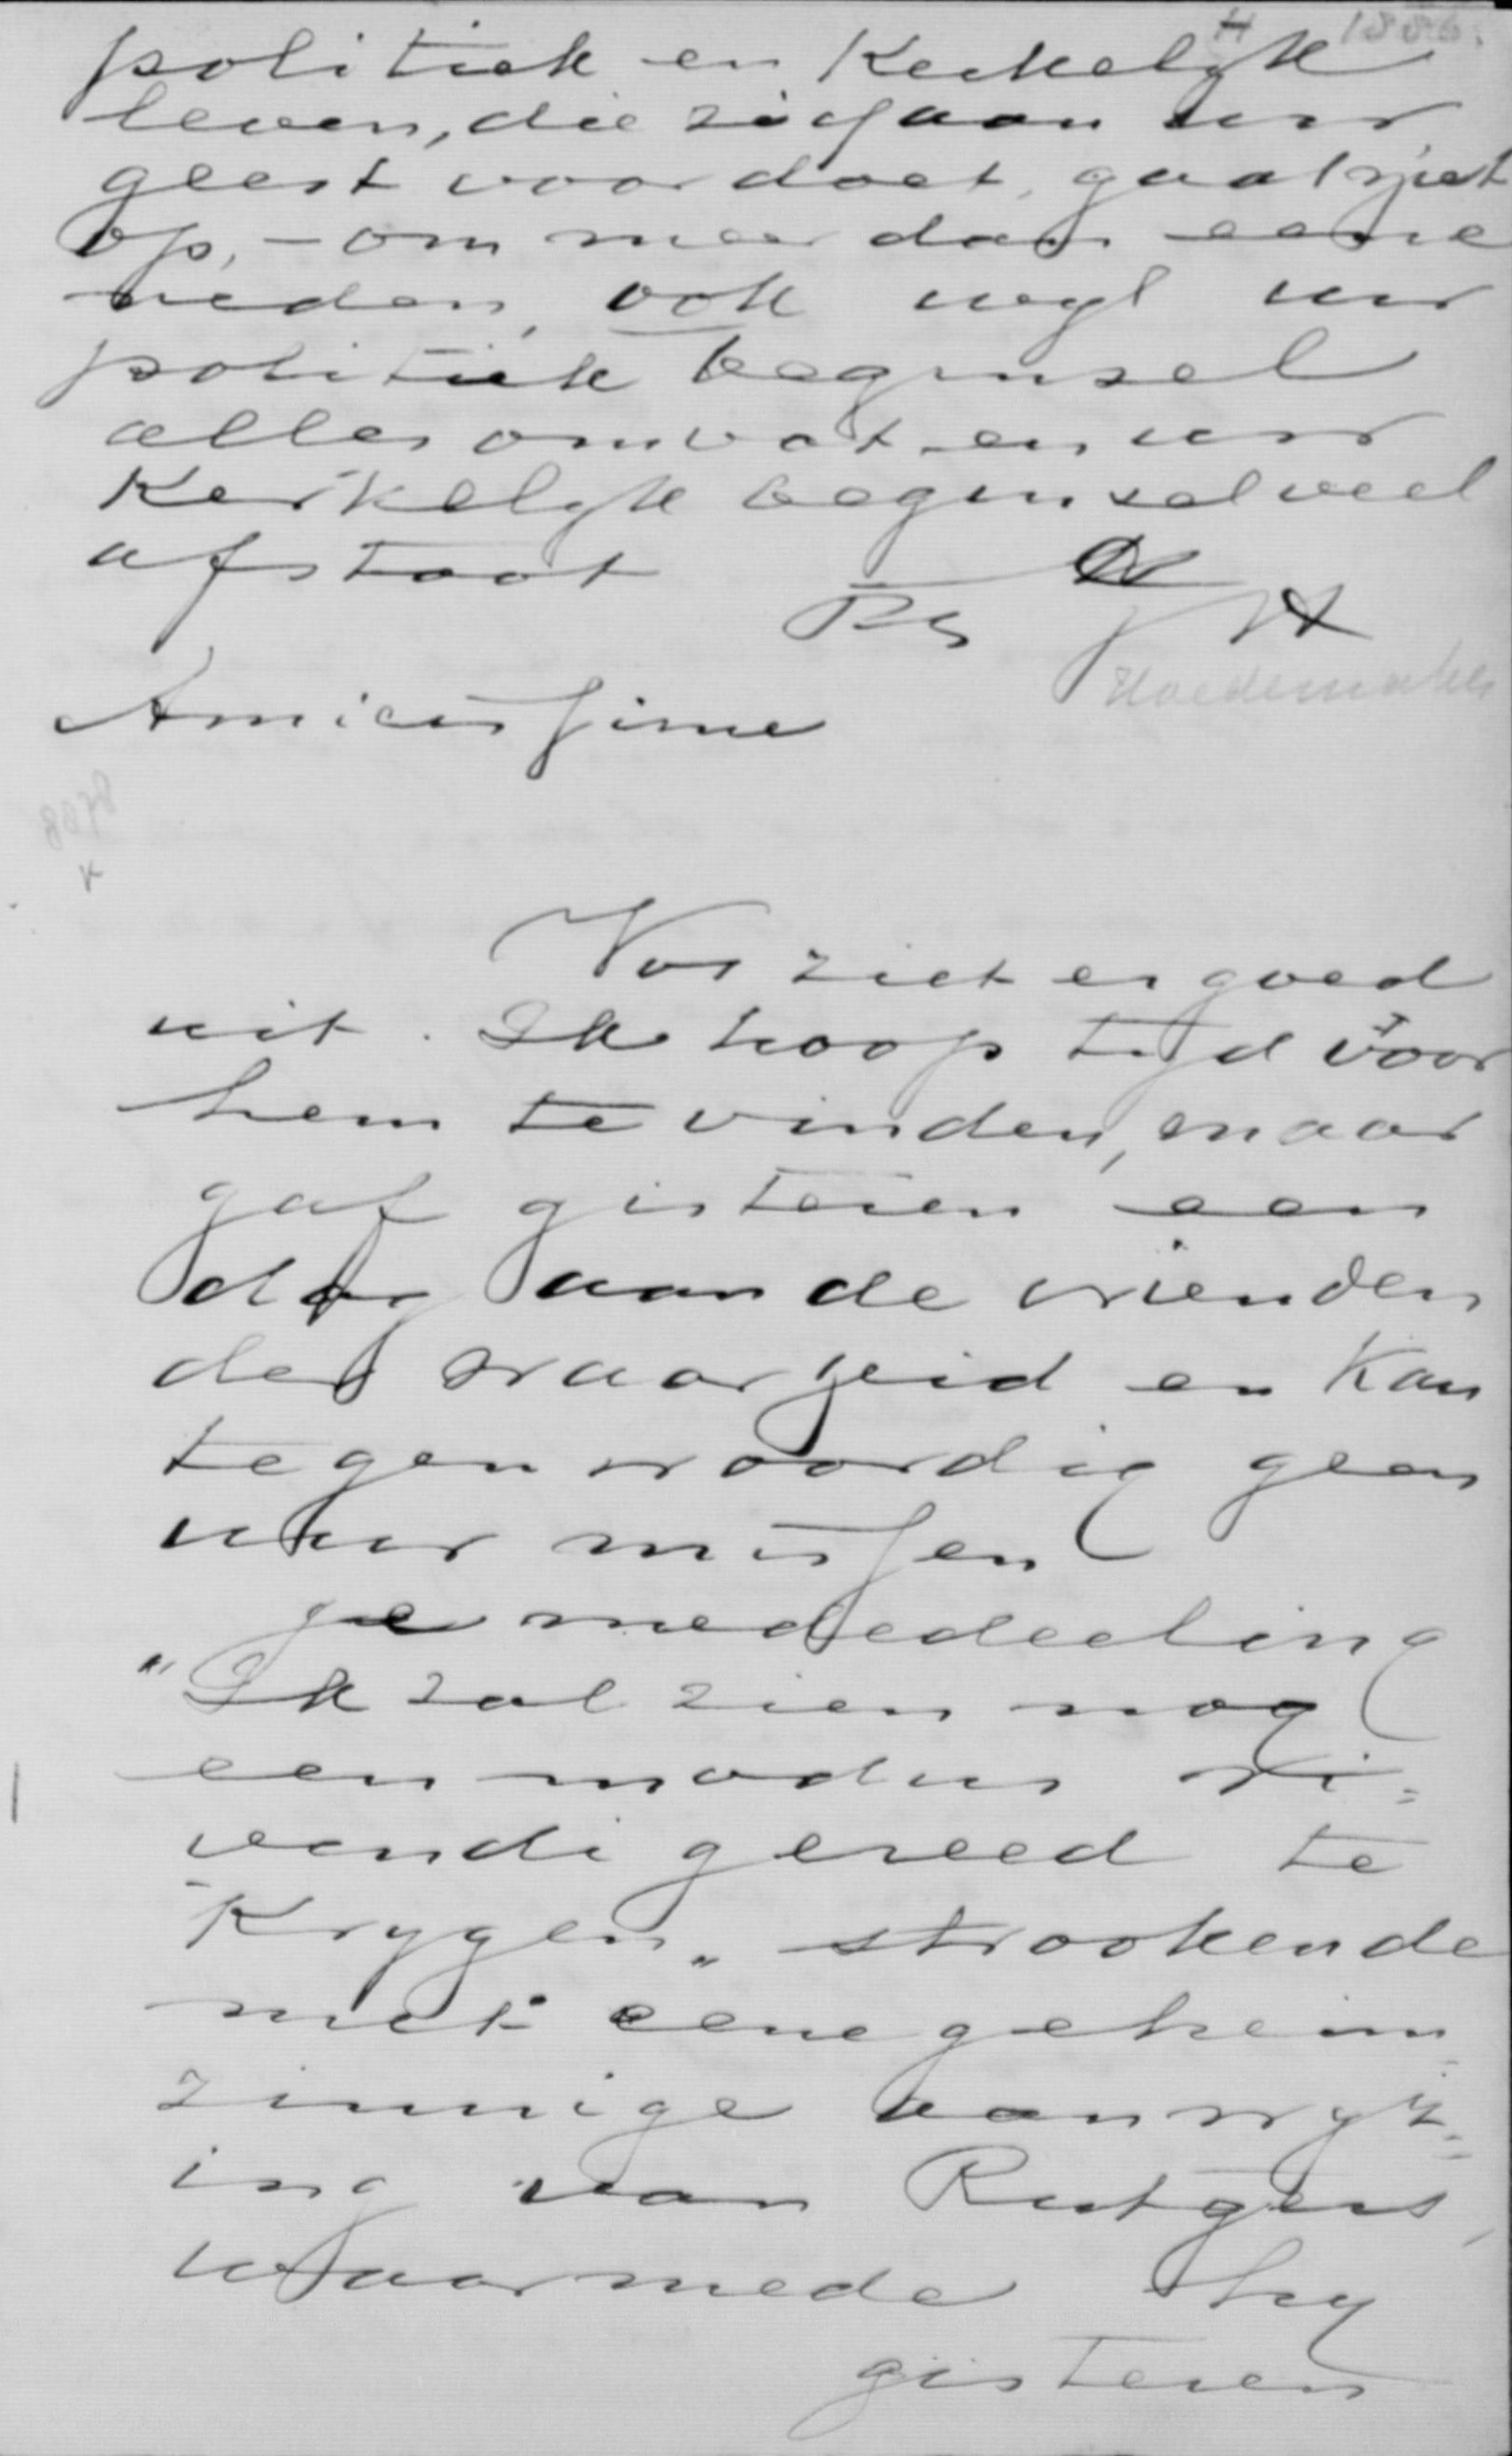 H 1886.
politiek en Kerkelyk
leven, die zig aan uw
geest voordoet, gaat niet
op, — om meer dan eene
reden, ook wyl uw
politiek beginsel
alles omvat en uw
Kerkelyk beginsel veel
afstoot
Amicissime
Hoedemaker
Vos ziet er goed
uit. Ik hoop tyd voor
hem te vinden, maar
gaf gisteren een
dag aan de vrienden
der waarheid en kan
tegenwoordig geen
uur missen
je mededeeling
"Ik zal zien nog
een modus vi=
vendi gereed te
Krygen" strookende
met eene geheim
zinnige aanwyz=
ing van Rutgers,
waarmede hy
gisteren